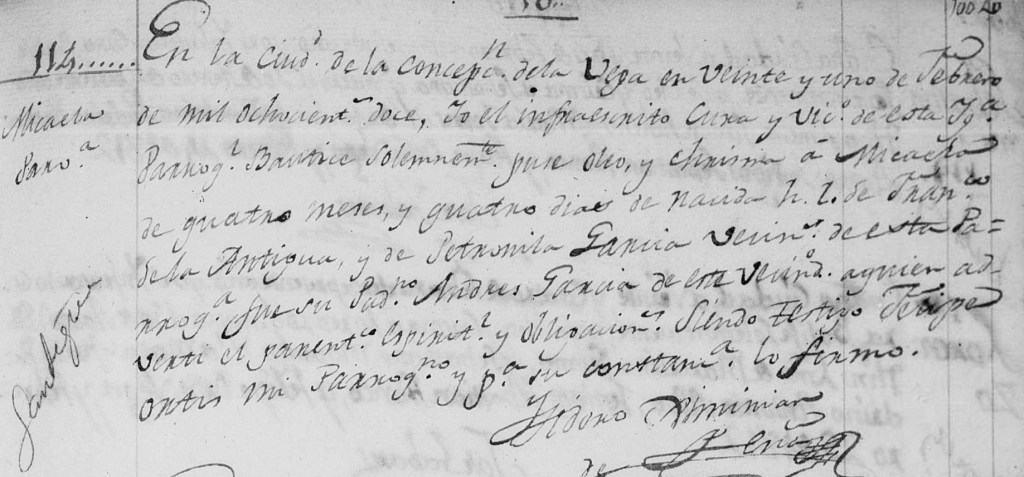 114......
Micaela
Parv.a
En la Ciud. de la Concepn. de la Vega en veinte y uno de Febrero
de mil ochocients. doce, Yo el infraescrito Cura y Vico. de esta Yga.
Parroql. Bautice Solemnemte. puse oleo, y chrisma â Micaela
de quatro meses, y quatro dias de nacida h. l. de Franco
de la Antigua, y de Petronila Garcia vecins. de esta Pa=
rroqa. fue su Padno Andres Garcia de este vecindo. aquien ad-
verti el parentco. espiritl. y obligacions. Siendo testigo Felipe
Ortis mi Parroqno y pa. su constana. lo firmo.
Ysidoro
de